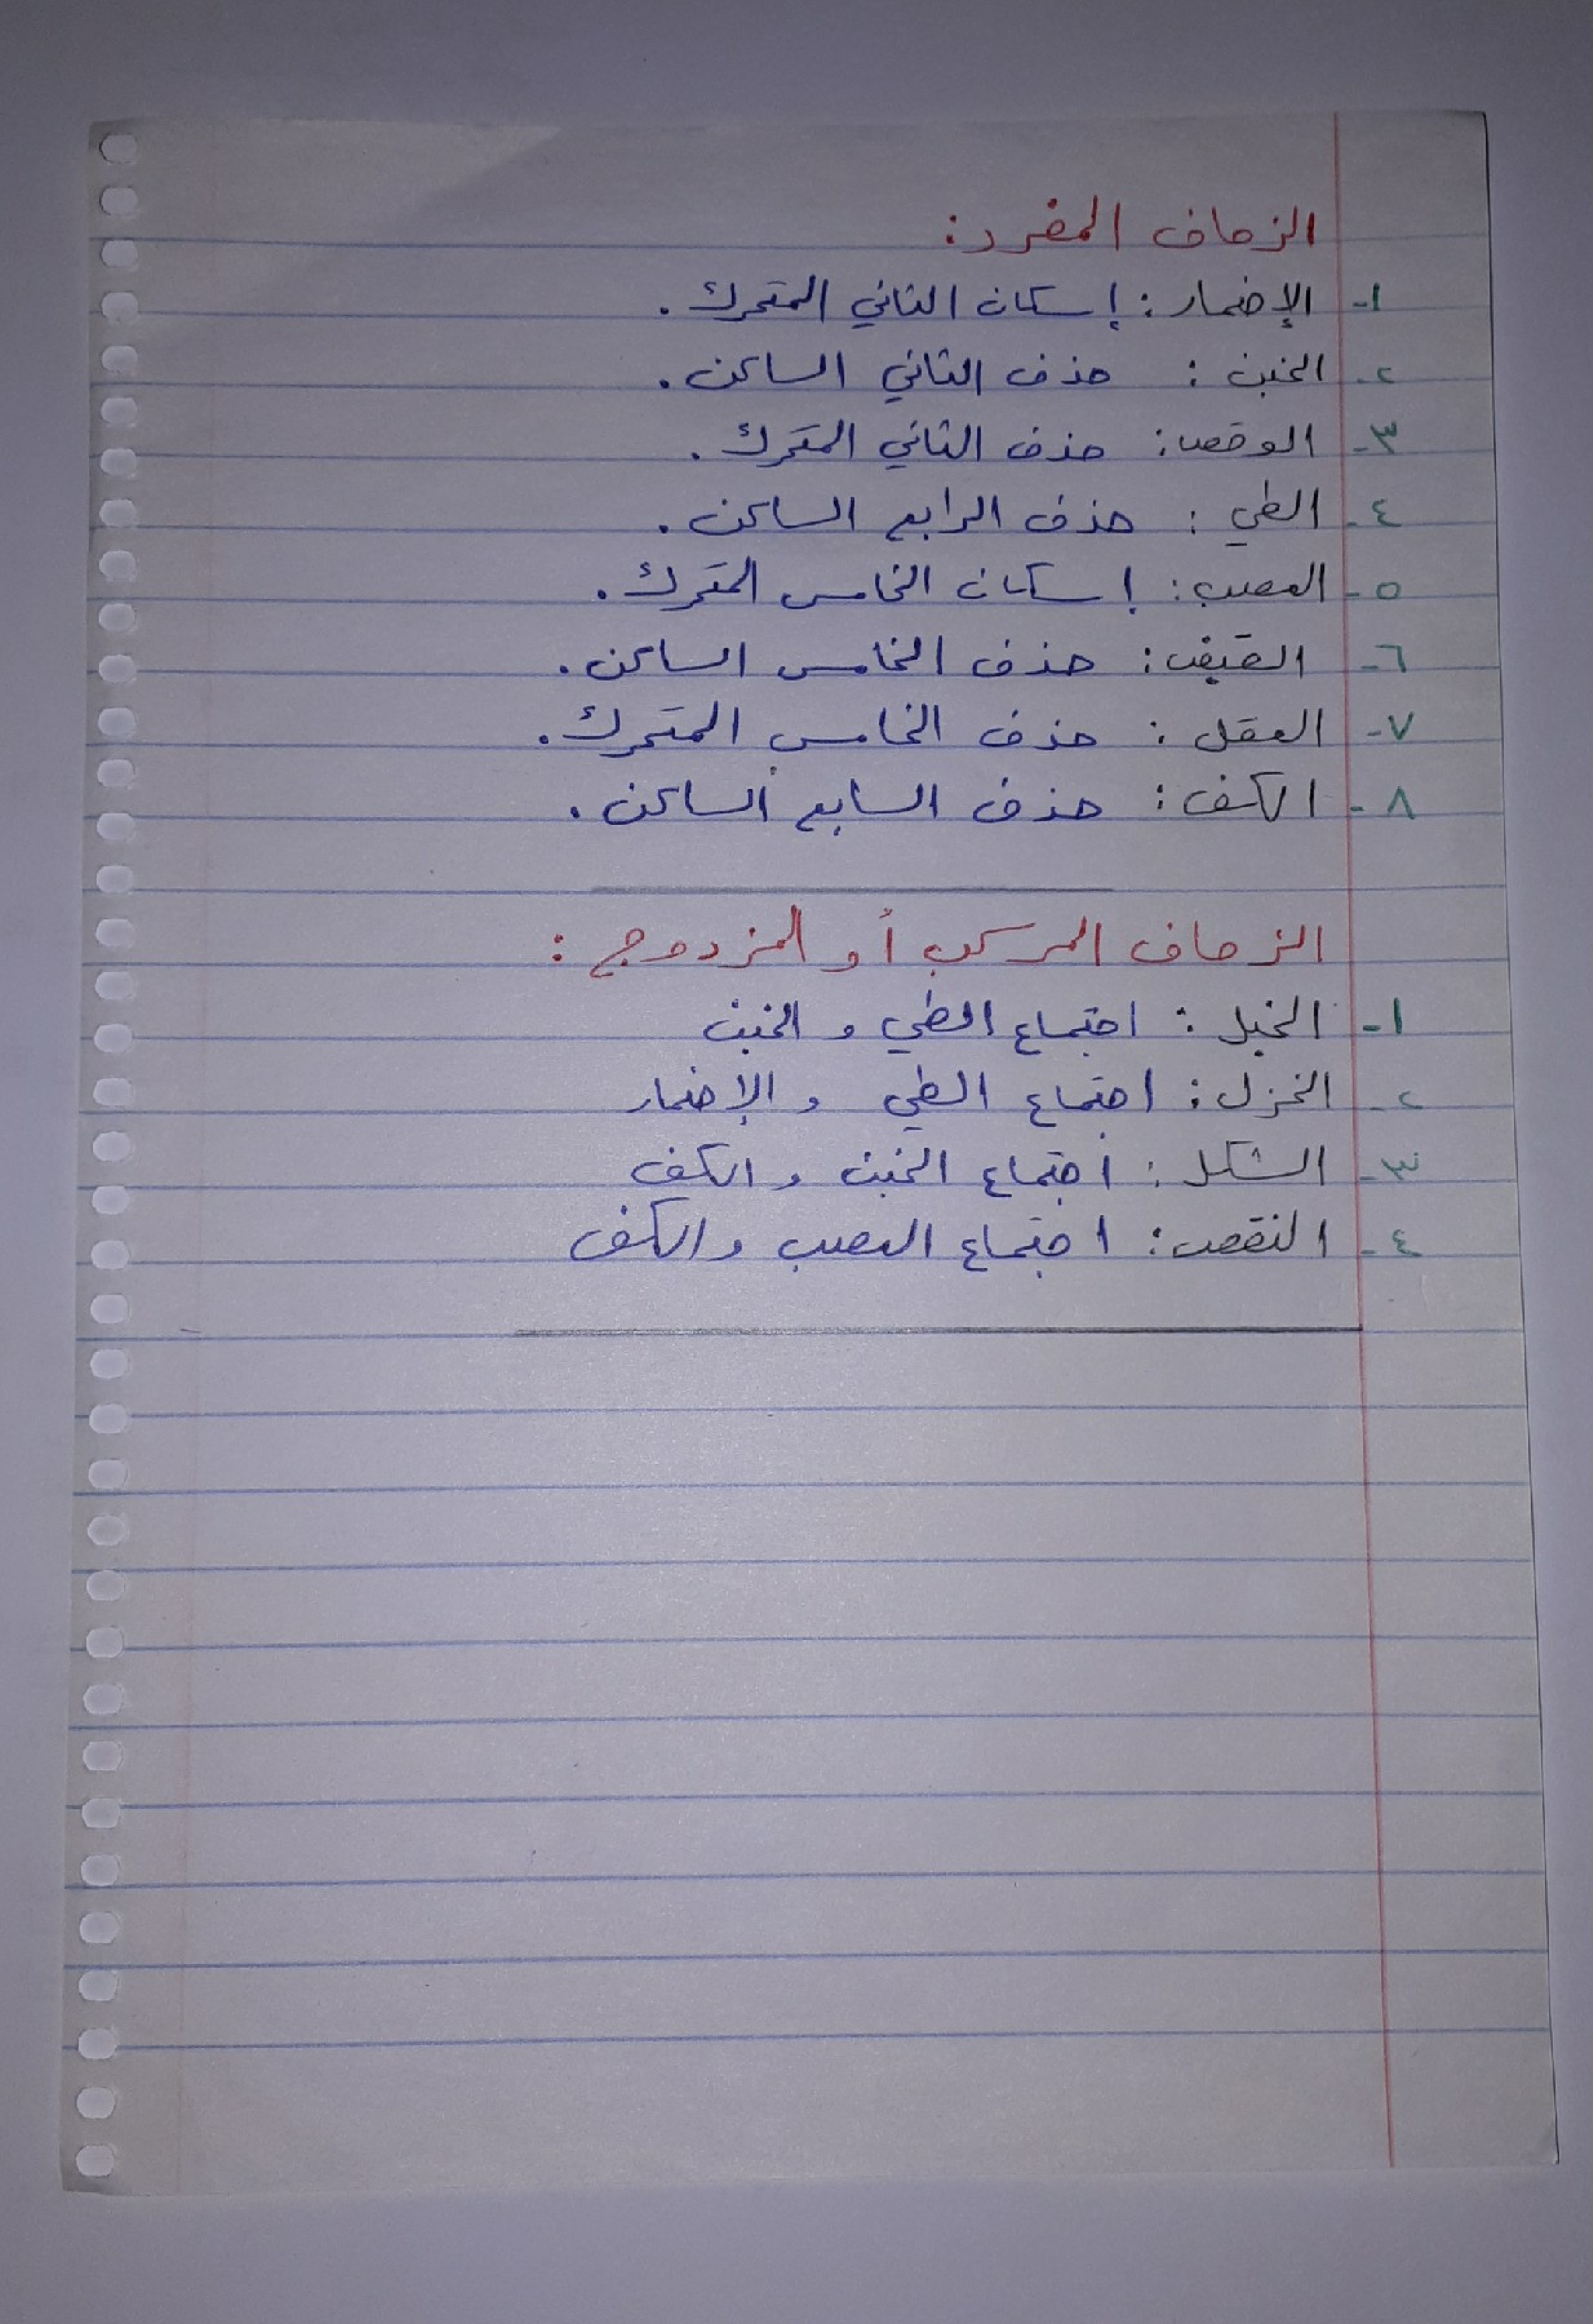 الزحاف المفرد:
١- الإضمار: إسكان الثاني المتحرك.
٢- الخبن: حذف الثاني الساكن.
٣- الوقص: حذف الثاني المتحرك.
٤- الطي: حذف الرابع الساكن.
٥- العصب: إسكان الخامس المتحرك.
٦- القبض: حذف الخامس الساكن.
٧- العقل: حذف الخامس المتحرك.
٨- الكف: حذف السابع الساكن.
الزحاف المركب أو المزدوج:
١- الخبل: اجتماع الطي و الخبن
٢- الخزل: اجتماع الطي و الإضمار
٣- الشكل: اجتماع الخبن و الكف
٤- النقص: اجتماع العصب والكف